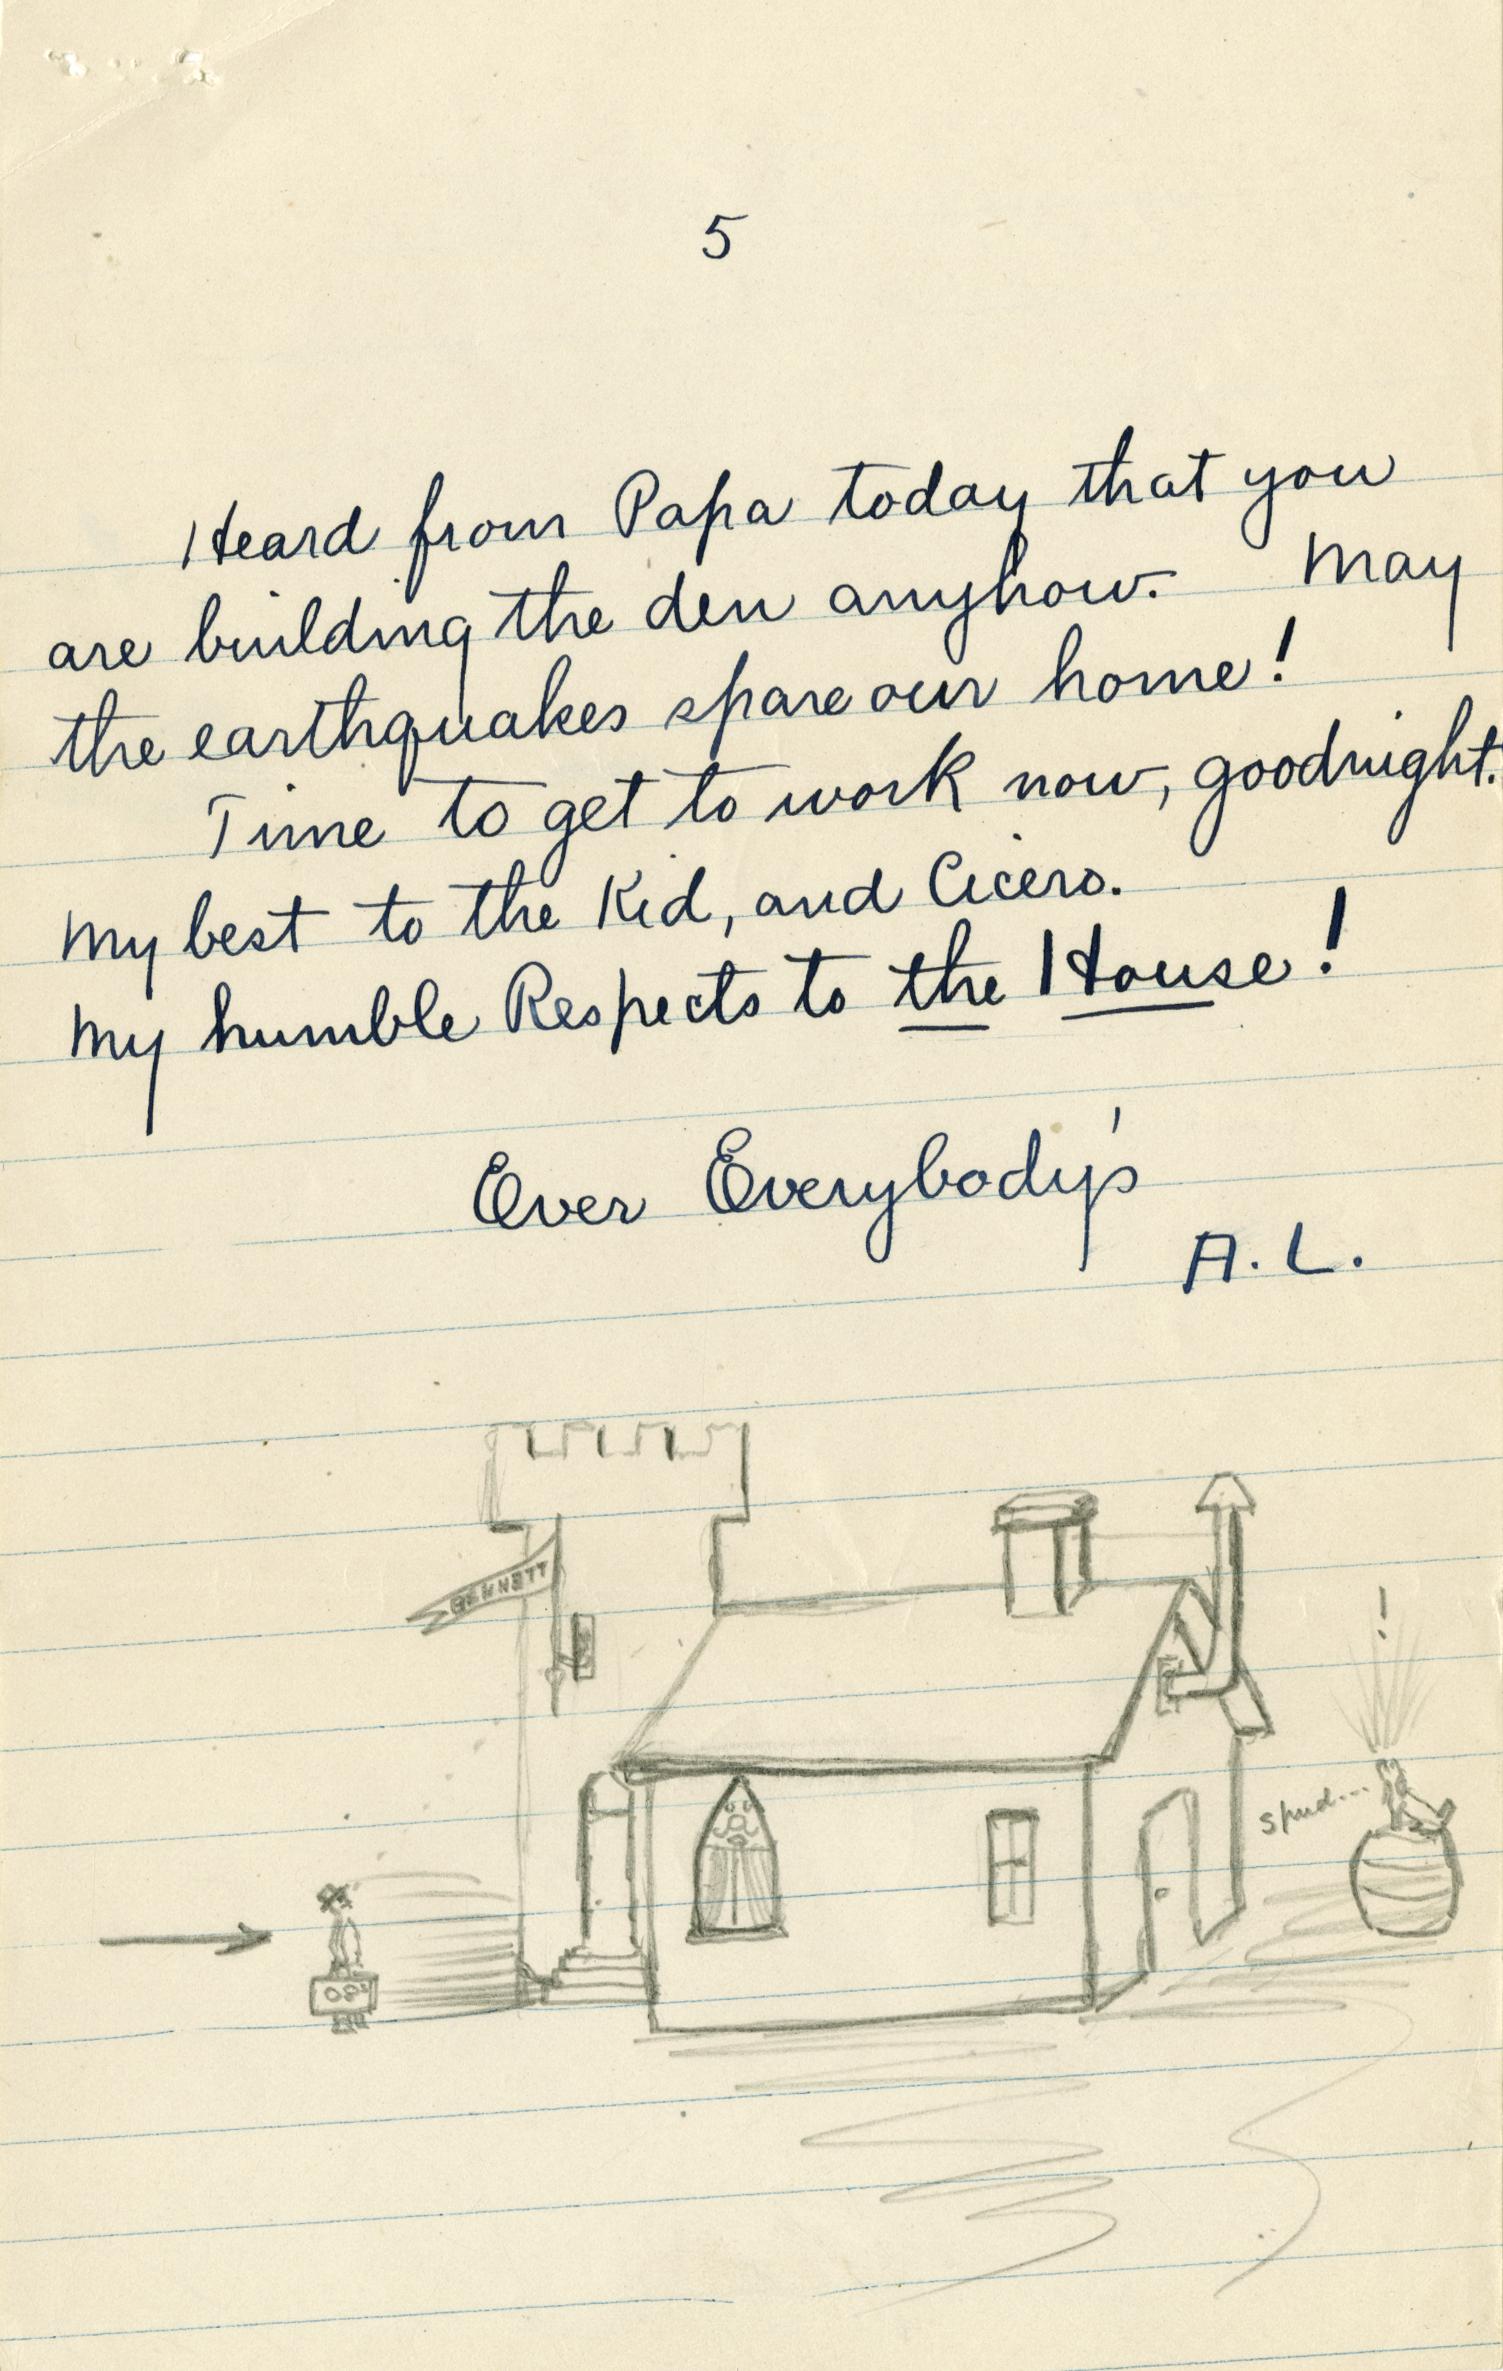 5
Heard from Papa today that you
are building the den anyhow. May
the earthquakes spare our home!
Time to get to work now, goodnight.
My best to the Kid, and Cicero.
My humble Respects to the House!
Ever Everybody's
A. L.
BENNETT
!
spud...